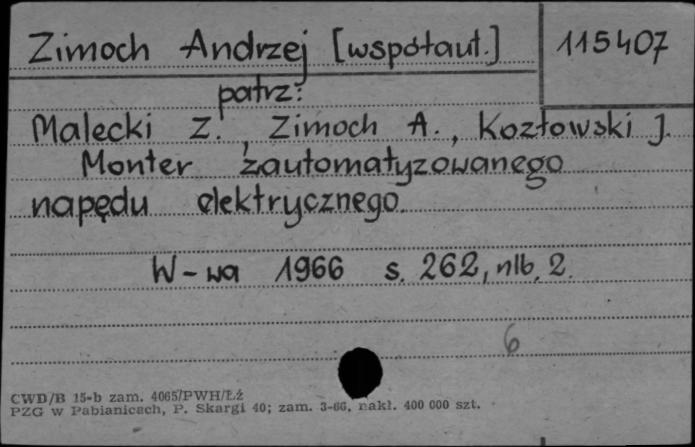 Zimoch Andrzej [współaut.] 115407
patrz:
Malecki Z., Zimoch A., Kozłowski J.
Monter zautomatyzowanego
napędu elektrycznego.
W-wa 1966 s. 262, nlb. 2.
6
CWD/B 15-b zam. 4065/PWH/Łź
PZG w Pabianicach, P. Skargi 40; zam. 3-66, nakł. 400 000 szt.